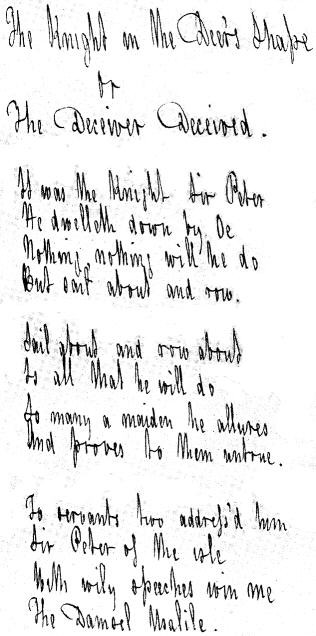 The Knight in the Deer's Shape
or
The Deceiver Deceived.
It was the Knight Sir Peter
He dwelleth down by Oe
Nothing, nothing will he do
But sail about and row.
Sail about and row about
Is all that he will do
So many a maiden he allures
And proves to them untrue.
To servants two address'd him
Sir Peter of the isle
With wily speeches win me
The Damsel